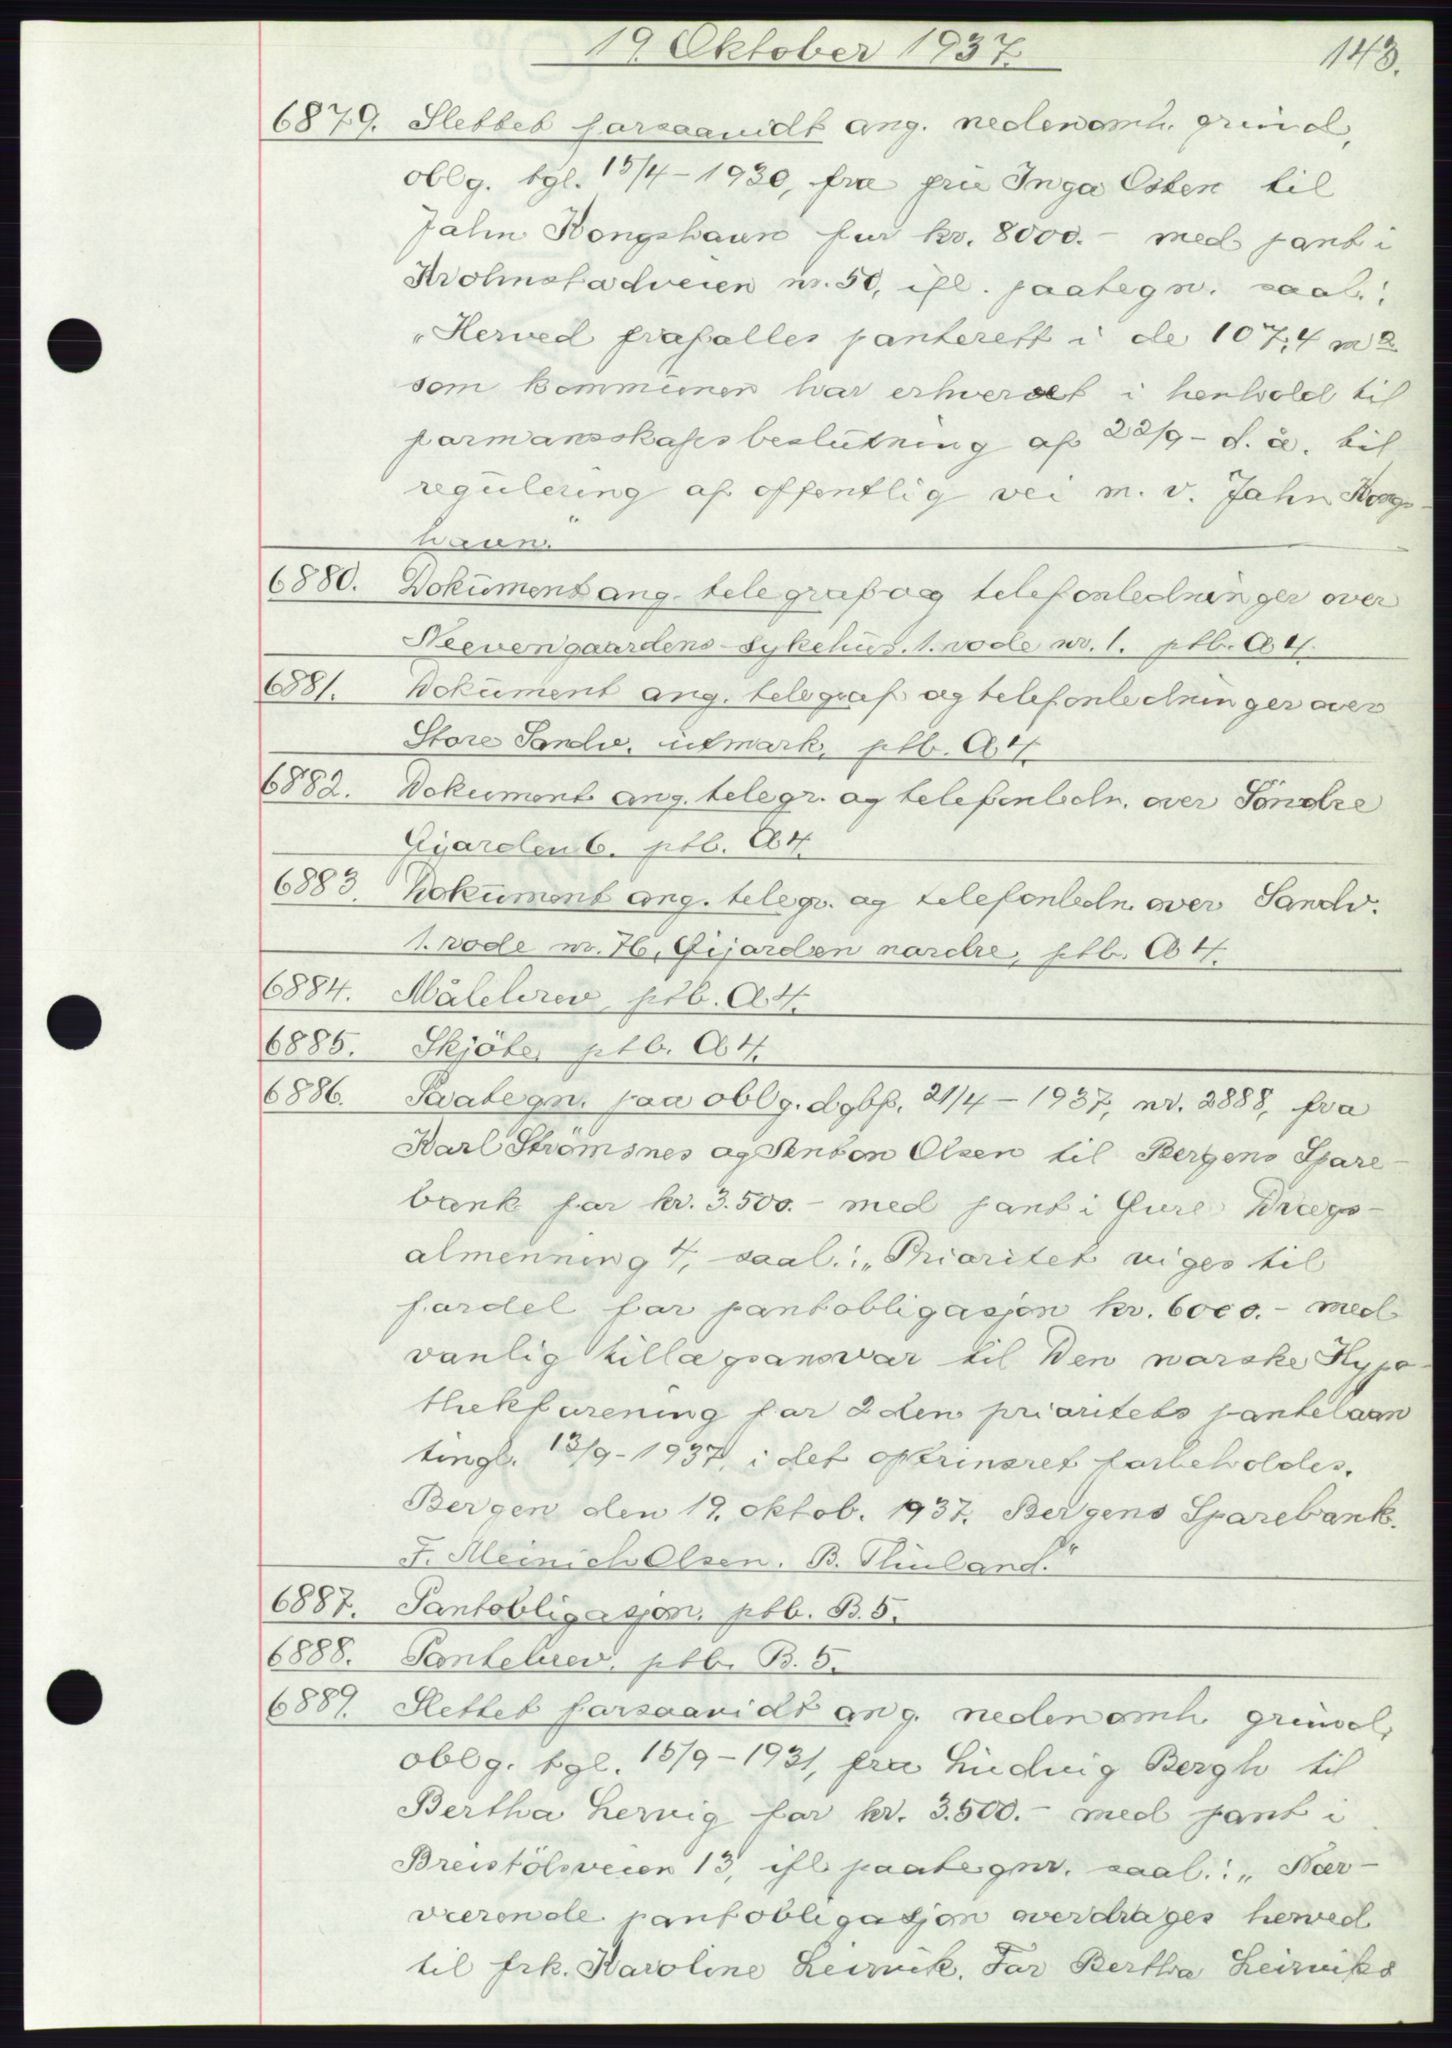 19. Oktober 1937.
143.
6879. Slettet forsaavidt ang. nedenomh. grund,
oblg. tgl. 15/4-1930, fra fru Inga Osten til
John Kongshavn for kr. 8000.- med pant i
Krohnstadveien nr. 50, ifl. paategn. saal.:
"Herved frafalles panterett i de 107,4 m2
som kommunen har erhvervet i henhold til
formansskapsbeslutning af 22/9- d. å. til
regulering af offentlig vei m. v. John Kongs-
havn."
6880. Dokument ang. telegraf og telefonledninger over
Neevengaardens sykehus. 1. rode nr. 1. ptb. A 4.
6881. Dokument ang. telegraf og telefonledninger over
Store Sandv. utmark, ptb. A 4.
6882. Dokument ang. telegr. og telefonledn. over Söndre
Gjarden 6. ptb. A 4.
6883. Dokument ang. telegr. og telefonledn. over Sandv.
1. rode nr. 76, Gjarden nordre, ptb. A 4.
6884. Målebrev, ptb. A 4.
6885. Skjöte, ptb. A 4.
6886. Paategn. paa oblg. dgbf. 21/4-1937, nr. 2888, fra
Karl Strömsnes og Anton Olsen til Bergens Spare-
bank for kr. 3.500.- med pant i Övre Drægs-
almenning 4, saal.: "Prioritet viges til
fordel for pantobligasjon kr. 6000.- med
vanlig tillægsansvar til Den norske Hypo-
thekforening for 2den prioritets pantelaan
tingl. 13/9-1937, i det optrinsret forbeholdes.
Bergen den 19. oktob. 1937. Bergens Sparebank.
F. Meinich Olsen. B. Thuland."
6887. Pantobligasjon, ptb. B. 5.
6888. Pantebrev, ptb. B. 5.
6889. Slettet forsaavidt ang. nedenomh. grund,
oblg. tgl. 15/9-1931, fra Ludvig Bergh til
Bertha Lervig for kr. 3.500.- med pant i
Breistölsveien 13, ifl. paategn. saal.: "Nær-
værende pantobligasjon overdrages herved
til frk. Karoline Leirvik. For Bertha Leirviks